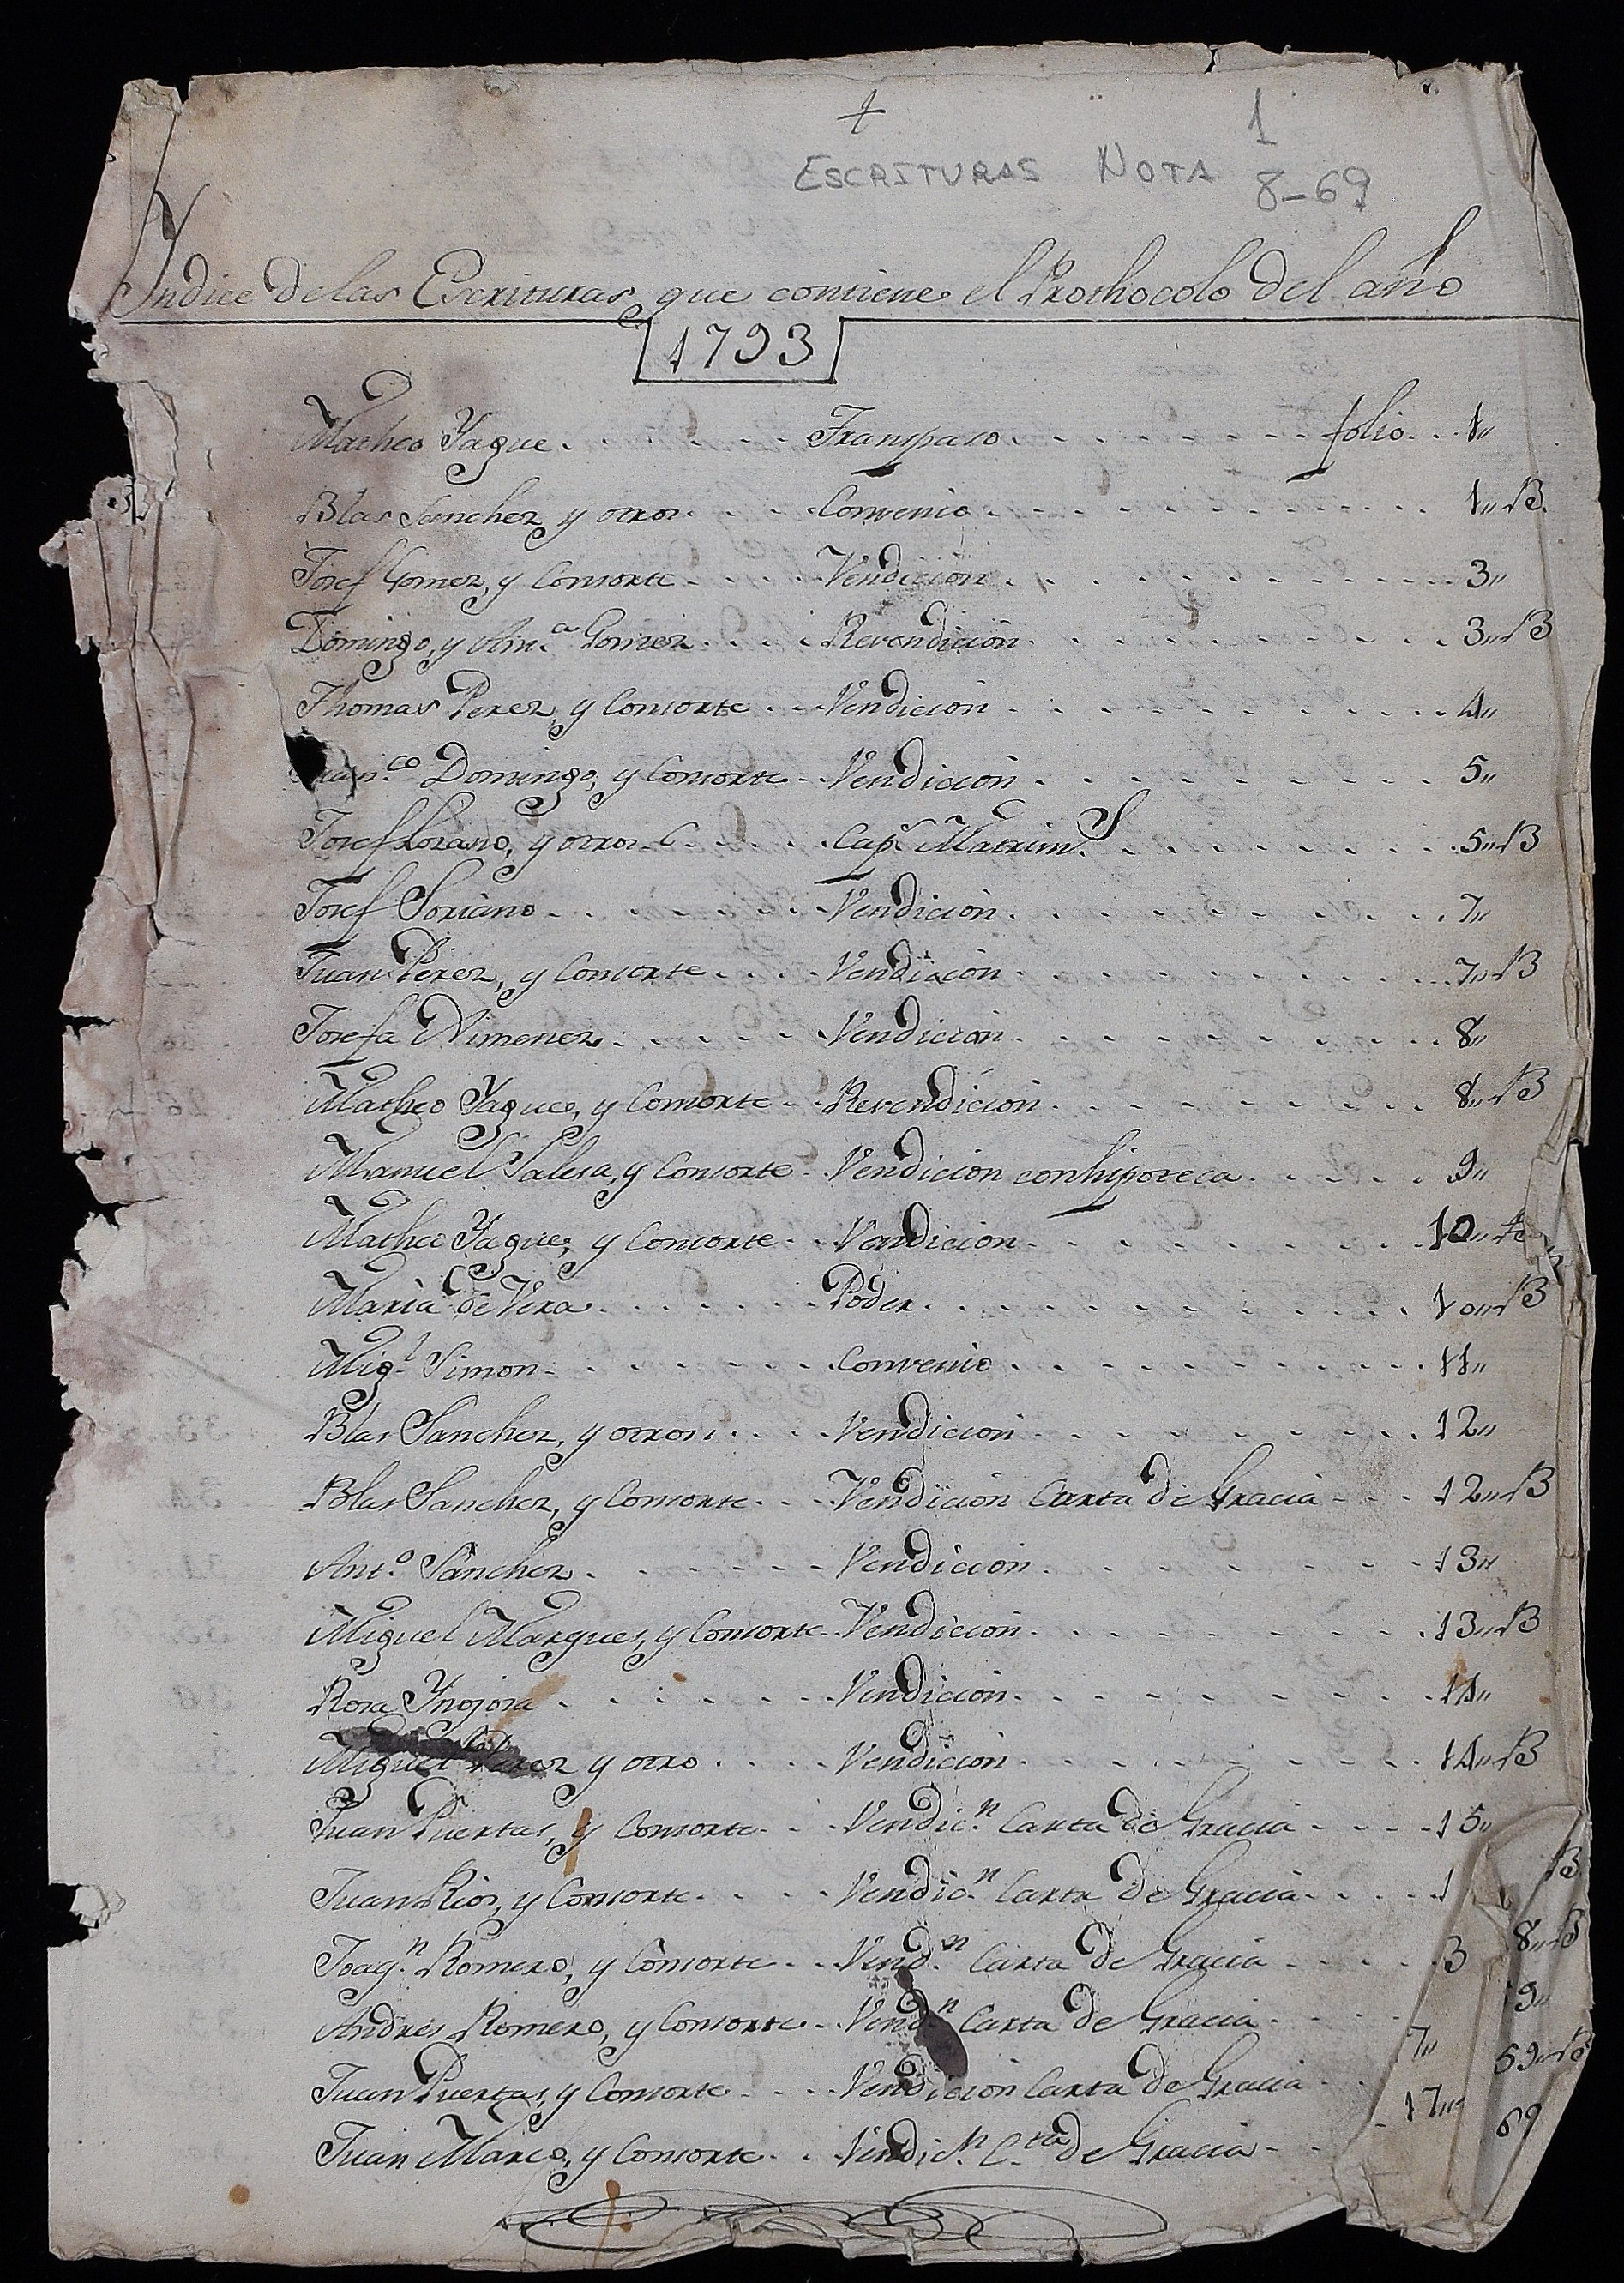 +
1
ESCRITURAS NOTA 8-69
Yndice de las Escrituras, que contiene el Prothocolo del año
1793
Matheo Yague . . . . Transpaso . . . . folio . . 1,,
Blas Sanchez, y otros . . . Convenio . . . . 1,, B.
Josef Gomez, y Consorte . . . . Vendicion . . . . 3,,
Domingo, y Gomez . . . . Revendicion . . . . 3,, B
Thomas Perez, y Consorte . . Vendicion . . . . 4,,
Domingo, y Consorte . . Vendicion . . . . 5,,
Josef Lozano, y otros . . . . Cap.s Matrim.s . . . . 5,, B
Josef Soriano . . . . Vendicion . . . . 7,,
Juan Perez, y Consorte . . . . Vendicion . . . . 7,, B
Josefa Ximenez . . . . Vendicion . . . . 8,,
Matheo Yague, y Consorte . . Revendicion . . . . 8,, B
Manuel Salesa, y Consorte . . Vendicion con hipoteca . . . . 9,,
Matheo Yague, y Consorte . . Vendicion . . . . 10,,
Maria de Vera . . . . Poder . . . . 10,, B
Mig.l Simon . . . . Convenio . . . . 11,,
Blas Sanchez, y otros . . . . Vendicion . . . . 12,,
Blas Sanchez, y Consorte . . . Vendicion Carta de Gracia . . . 12,, B
Ant.o Sanchez . . . . Vendicion . . . . 13,,
Miguel Marques, y Consorte . . Vendicion . . . . 13,, B
Rosa Ynojosa . . . . Vendicion . . . . 14,,
Miguel Perez y otro . . . . Vendicion . . . . 14,, B
Juan Puertas, y Consorte . . . Vendic.n Carta de Gracia . . . . 15,,
Juan Rios, y Consorte . . . . Vendic.n Carta de Gracia . . . . 1 B
Joaq.n Romero, y Consorte . . . Vend.n Carta de Gracia . . . . B 8,, B
Andres Romero, y Consorte . . Vend.n Carta de Gracia . . . . 7,, 9,,
Juan Puertas, y Consorte . . . . Vendicion Carta de Gracia . . . 17,, 59,, B
Juan Marco, y Consorte . . . Vendic.n C.ta de Gracia . . 69